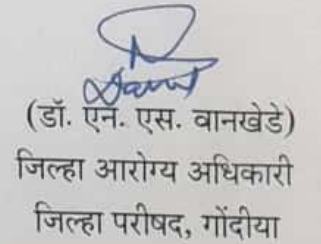 (डॉ. एन. एस. वानखेडे)
जिल्हा आरोग्य अधिकारी
जिल्हा परीषद, गोंदीया